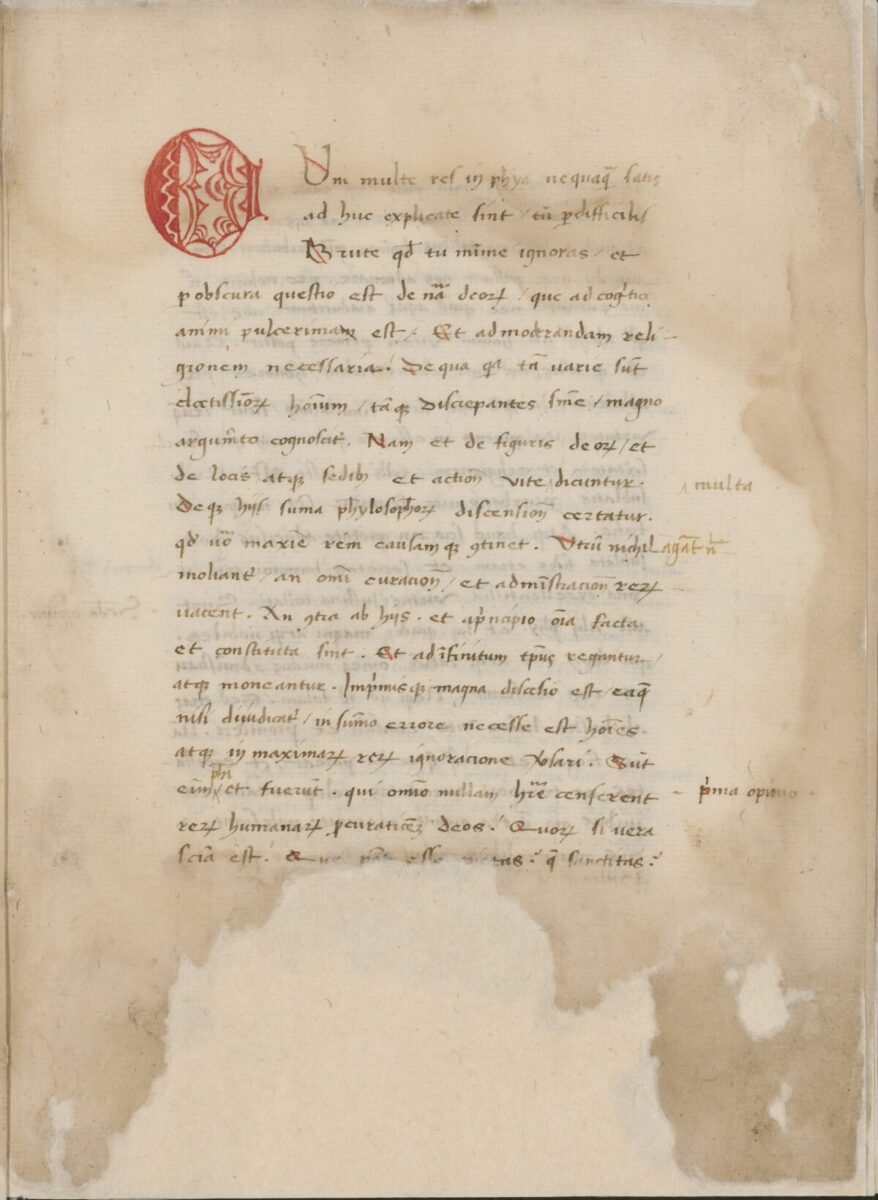 Q Um multe res in phya nequaq̄ satis
ad huc explicate sint / tū ꝑdifficilis
Brute qđ tu mīme ignoras / et
ꝑobscura questio est de nā̄ deoꝝ / que ad cogͥtio
animi pulcerimam est / Et ad moderandam reli-
gionem necessaria. De qua qͣ tā varie sūt
doctissīoꝝ hoīum / tāqꝫ discrepantes sn̄ie / magno
argum̄to cognoscit᷑. Nam et de figuris deoꝝ / et
de locis atqꝫ sedibꝫ et actioī vite / dicuntur. multa
Deqꝫ hijs suma phylosophoꝝ discensioī certatur.
qđ vͦ maxīe rem causamqꝫ ꝯtinet. Utrū nichil agāt n̄
moliant᷑ / an omī curacioī / et admīstracioī reꝝ
vacent. An ꝯtra ab hijs. et a pͥncipio oīa facta
et constituta sint. Et ad īfinitum tp̄us regantur /
atqꝫ moueantur. Impͥmisqꝫ magna discēsio est / eaq̄
nisi diuudicat᷑ / in sum̄o errore necesse est hoīes
atqꝫ in maximaꝝ reꝝ ignoracione ꝟsari. Sūt
eīm ph̄i et fuerūt. qui omīo nullam hr̄e censerent pͥma opinio
reꝝ humanaꝝ ꝓcuraticēꝫ deos. Quoꝝ si vera
sn̄ia est. Que esse q̄ sanctitas?